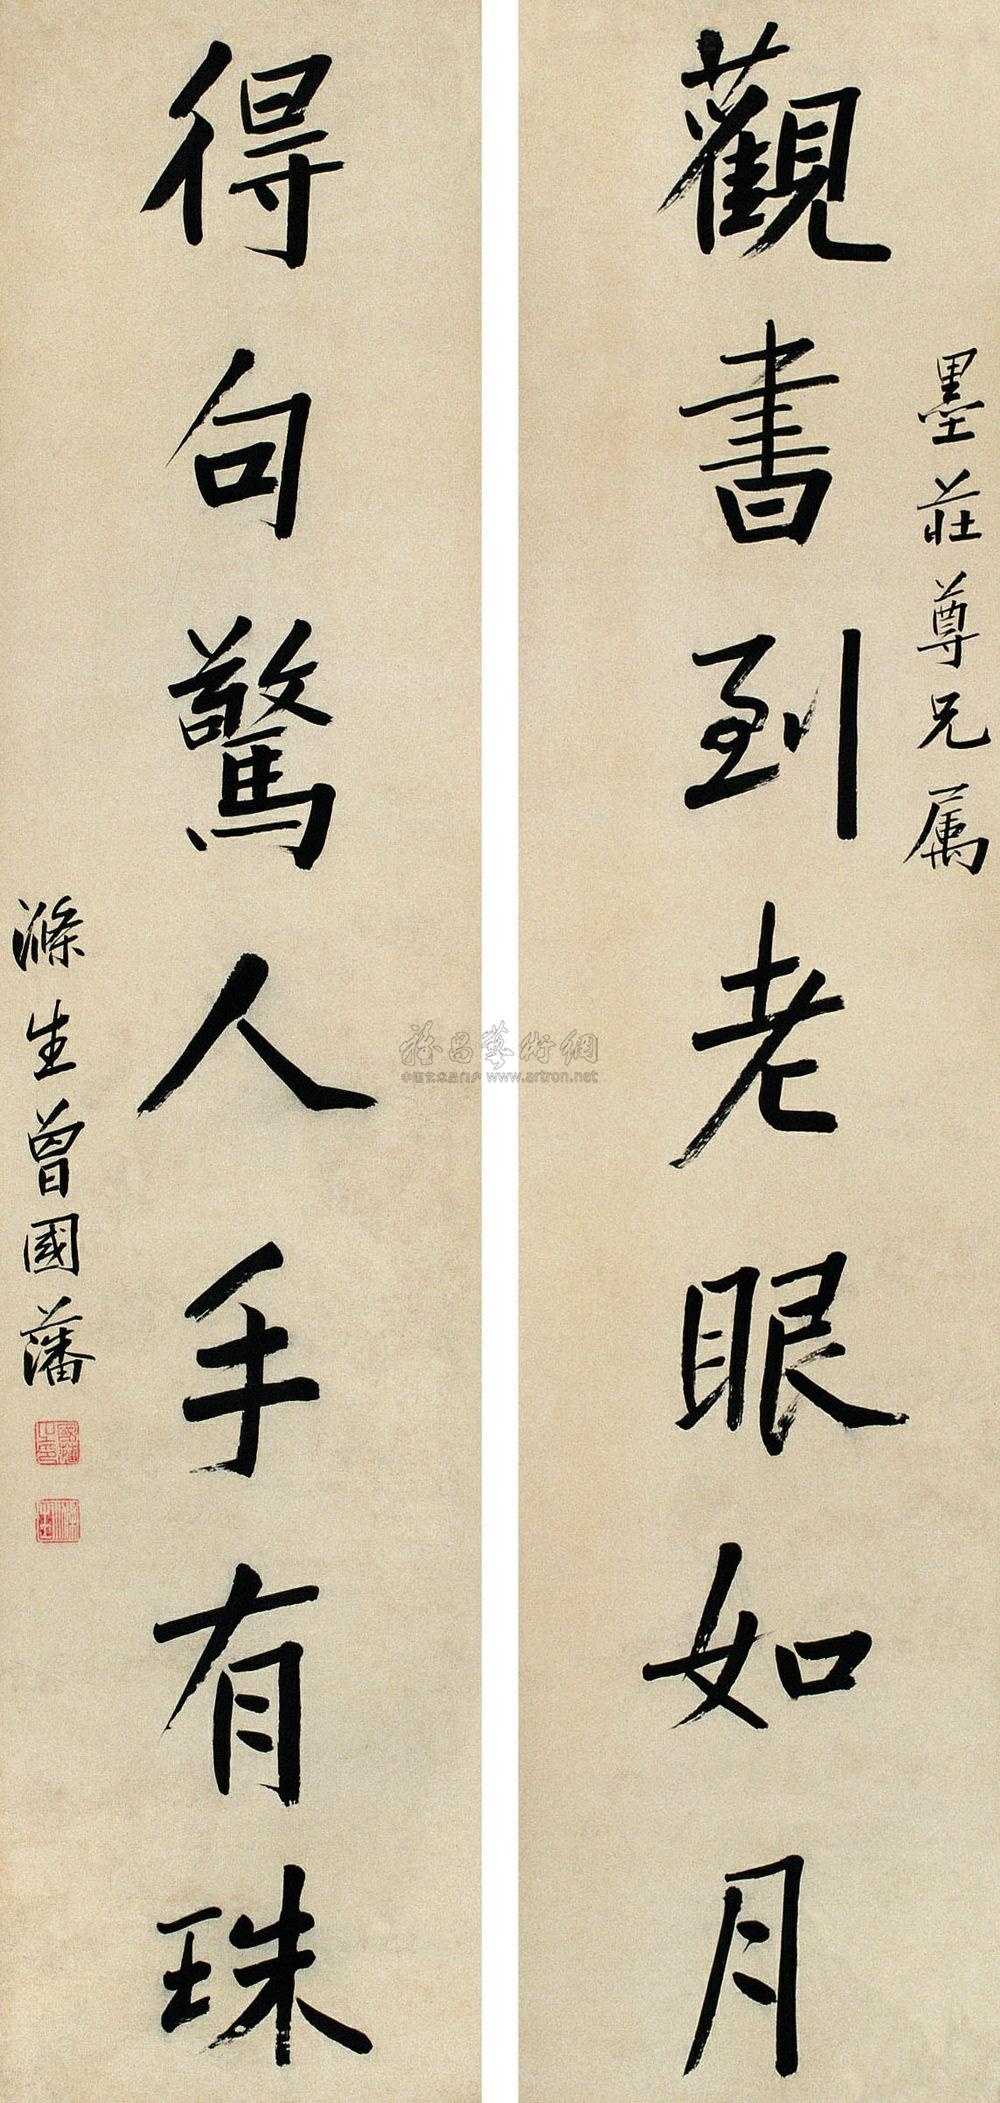 觀書到老眼如月
墨莊尊兄属
得句驚人手有珠
滌生曾國藩
中国艺术品门户 www.artron.net